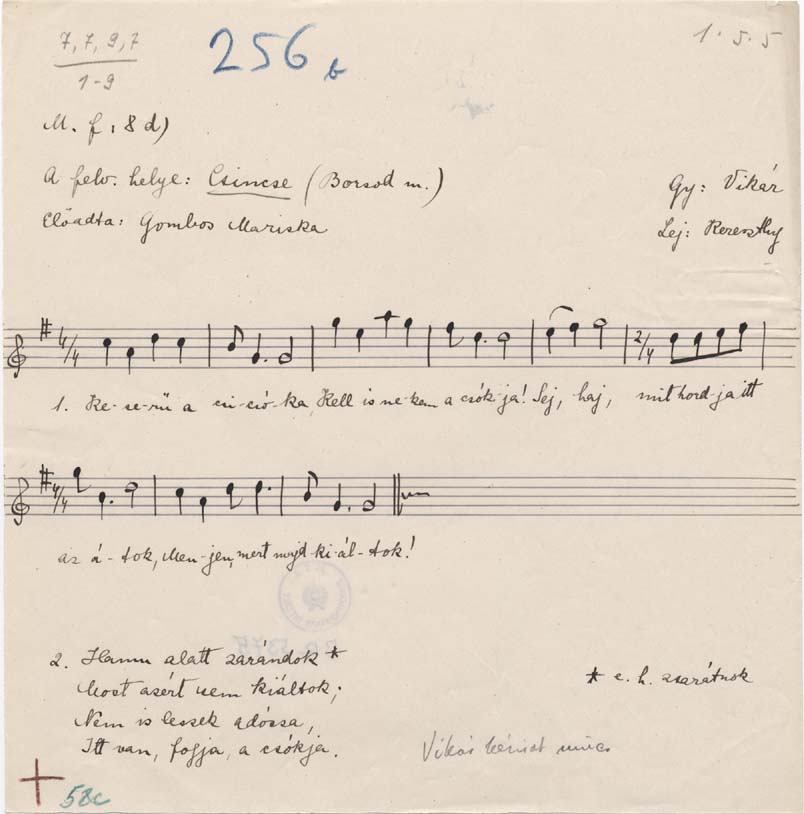 7, 7, 9, 7
1-9
256 b
1. 5. 5
M. f. 8 d)
A felv. helye: Csincse (Borsod m.)
Gy: Vikár
Előadta: Gombos Mariska
Lej: Kereszthy
4/4 2/4
1. Ke-se-rű a ci-ció-ka, Kell is ne-kem a csók-ja! Sej, haj, mit hord-ja itt
4/4
az á-tok, Men-jen, mert majd ki-ál-tok!
2. Hamu alatt zarándok *
Most azért sem kiáltok;
Nem is leszek adóssa,
Itt van, fogja, a csókja.
* e. h. azarátnok
Vikár nincs
58c